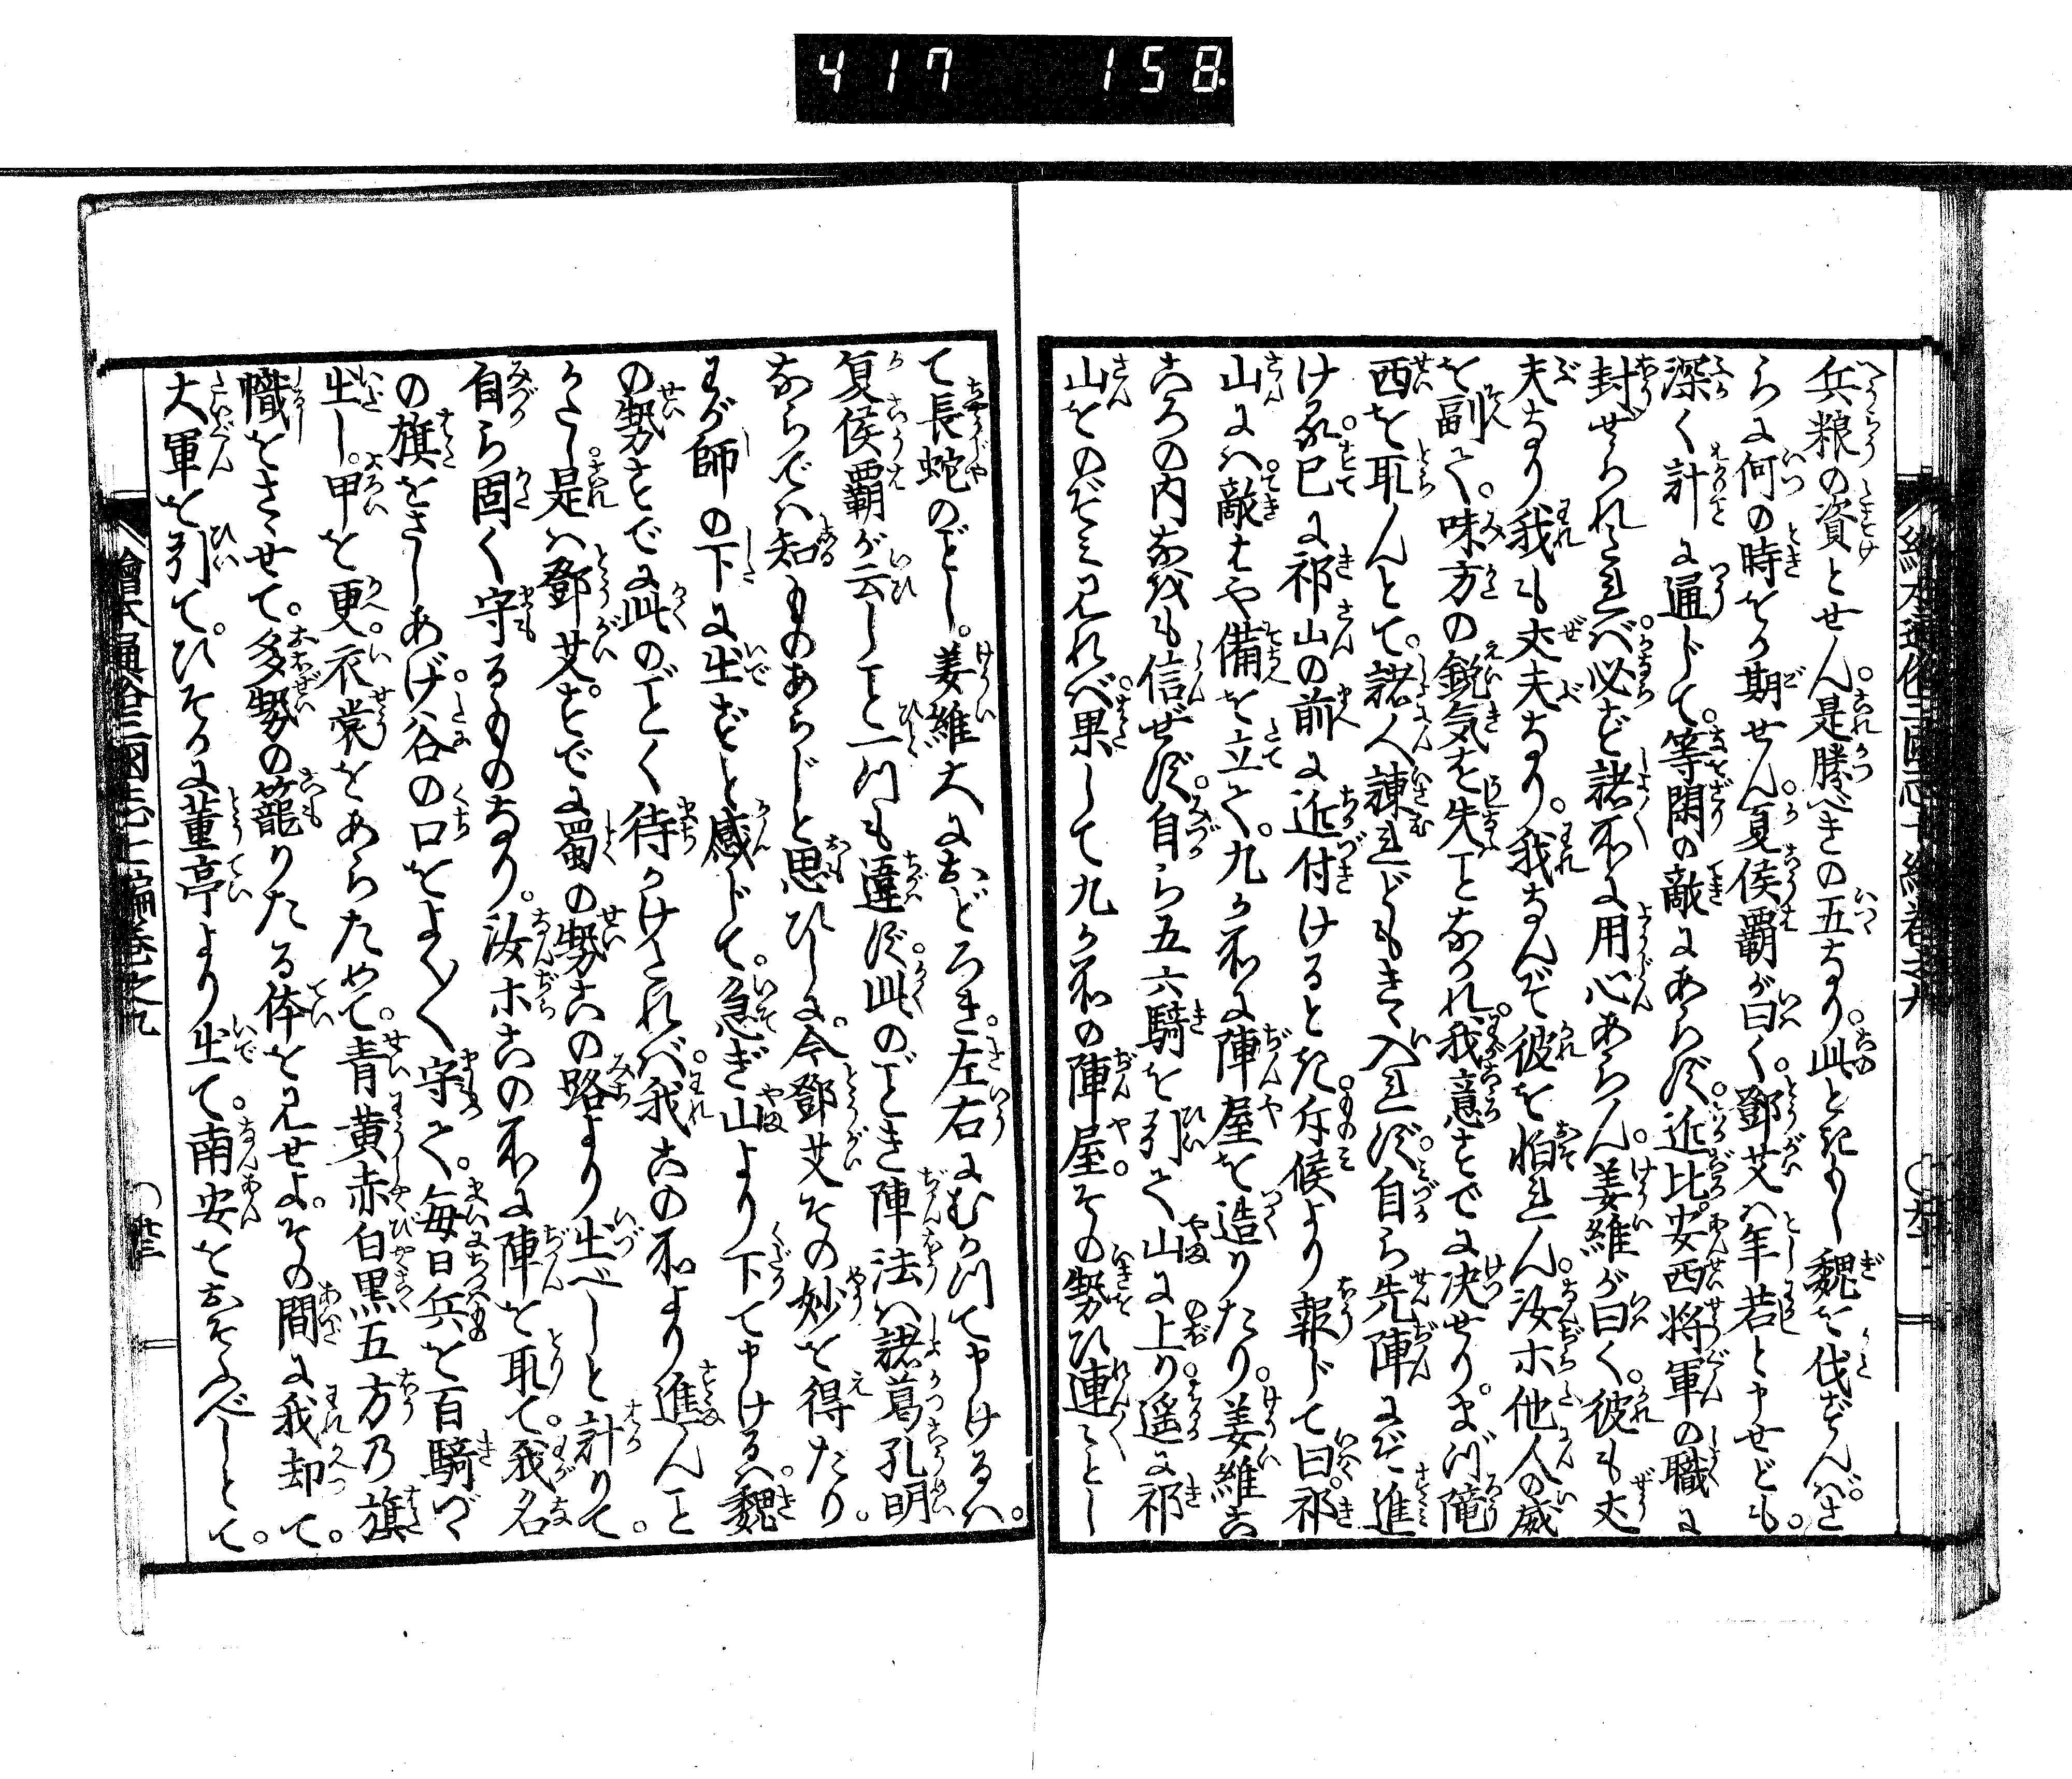 417 158
兵粮の資とせん。是勝べきの五なり。此ときもし魏を伐ずんば。さ
らに何の時をか期せん。夏侯覇が曰く。鄧艾ハ年若と申せども。
深く計に通じて。等閑の敵にあらず。近比安西将軍の職に
封ぜられたれバ。必ず諸所に用心あらん。姜維が曰く。彼も丈
夫なり我も丈夫なり。我なんぞ彼を怕れん。汝ホ他人の威
を副て。味方の鋭気を失ことなかれ。我意すでに决せり。まづ隴
西を取んとて。諸人諌れどもきゝ入れず。自ら先陣にぞ進
ける。已に祁山の前に近付けるとき。斥候より報じて曰。祁
山にハ。敵はや備を立て。九か所に陣屋を造りたり。姜維こ
ころの内なをも信ぜず。自ら五六騎を引て山に上り。遥に祁
山をのぞミ見れバ。果して九か所の陣屋。その勢ひ連〻とし
て長蛇のごとし。姜維大におどろき。左右にむかつて申けるハ。
夏侯覇が云しこと一つも違ず。此のごとき陣法ハ諸葛孔明
ならでハ知ものあらじと思ひしに。今鄧艾その妙を得たり。
わが師の下に出ずと感じて。急ぎ山より下て申けるハ。魏
の勢すでに此のごとく待かけたれバ。我この所より進んこと
かたし。是ハ鄧艾。すでに蜀の勢この路より出べしと計りて。
自ら固く守るものなり。汝ホこの所に陣を取て。我名
の旗をさしあげ。谷の口をよく〱守て。毎日兵を百騎づゝ
出し。甲を更。衣裳をあらためて。青黄赤白黒五方乃旗
幟をさゝせて。多勢の籠りたる体を見せよ。その間に我却て。
大軍を引て。ひそかに董亭より出て。南安をおそふべしとて。
繪本通俗三國志七編巻之九